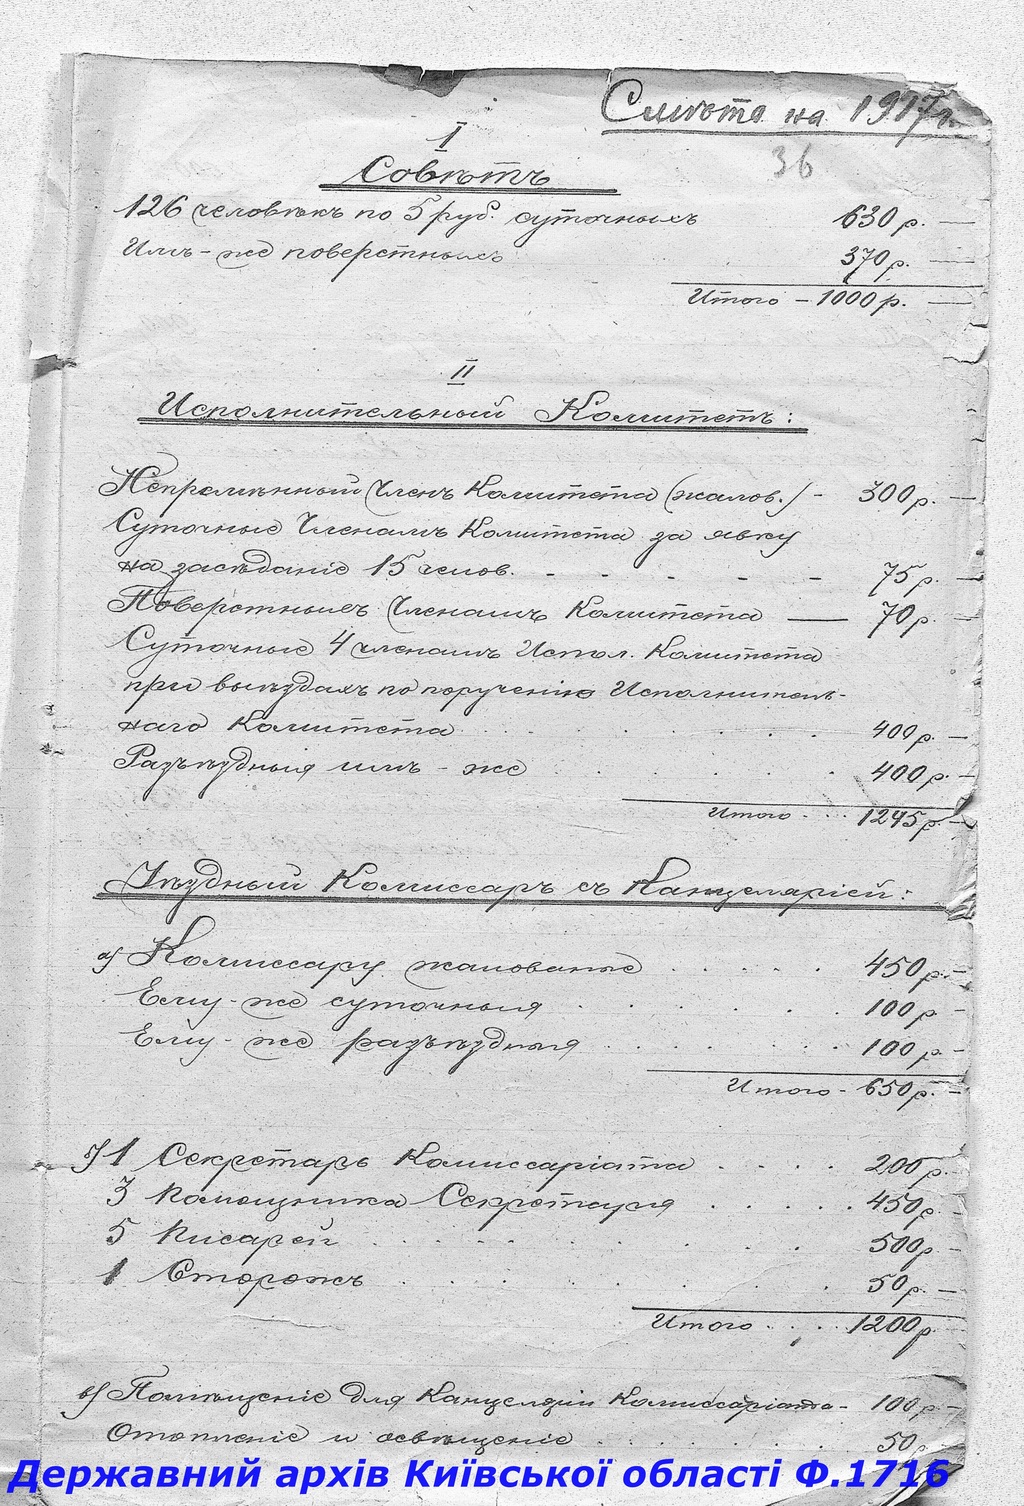 Смѣта на 1917 г.
36
I
Совѣтъ
126 человѣкъ по 5 руб. суточныхъ 630 р. —
Имъ-же поверстныхъ 370 р. —
Итого — 1000 р. —
II
Исполнительный Комитетъ:
Непремѣнный Членъ Комитета (жалов.) - 300 р. —
Суточные Членамъ Комитета за явку
на засѣданіе 15 челов. - - - - - 75 р. —
Поверстныхъ Членамъ Комитета — 70 р. —
Суточные 4 членамъ Испол. Комитета
при выѣздахъ по порученію Исполнитель-
наго Комитета . . . . . . 400 р. —
Разъѣздныя имъ-же . . . . 400 р. —
Итого . . . 1245 р. —
Уѣздный Комиссаръ съ Канцеляріей:
а) Комиссару жалованье . . . . . 450 р. —
Ему-же суточныя . . . . . . 100 р. —
Ему-же разъѣздныя . . . . . . 100 р. —
Итого - 650 р. —
б) 1 Секретарь Комиссаріата . . . . 200 р. —
3 Помощника Секретаря . . . . . 450 р. —
5 Писарей . . . . . . 500 р. —
1 Сторожъ . . . . . 50 р. —
Итого . . . . 1200 р.
в) Помѣщеніе для Канцеляріи Комиссаріата - 100 р. —
Отопленіе и освѣщеніе . . . . . . 50 р. —
Державний архів Київської області Ф.1716